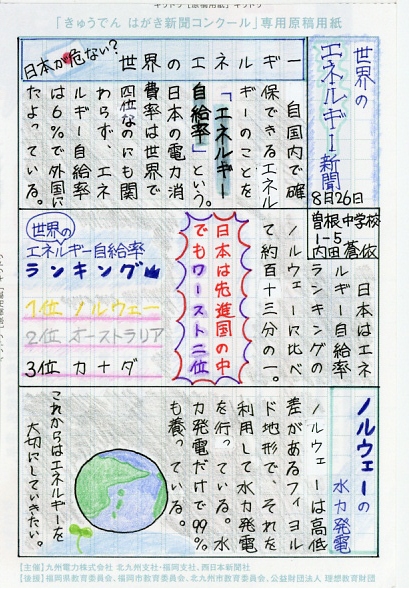 キリトリ【原稿用紙】キリトリ
「きゅうでん はがき新聞コンクール」専用原稿用紙
世界の
エネルギー新聞
8月26日
曽根中学校
1-5
内田蒼依
日本が危ない？
世界のエネルギー
自国内で確
保できるエネル
ギーのことを
「エネルギー
自給率」という。
日本の電力消
費率は世界で
四位なのにも関
わらず、エネ
ルギー自給率
は6%で外国に
たよっている。
日本はエネ
ルギー自給率
ランキングの
ノルウェーに比べ
て約百十三分の一。
日本は先進国の中
でもワースト二位
世界の
エネルギー自給率
ランキング
1位 ノルウェー
2位 オーストラリア
3位 カナダ
ノルウェーの
水力発電
ノルウェーは高低
差があるフィヨル
ド地形で、それを
利用して水力発電
を行っている。水
力発電だけで99%
も養っている。
これからはエネルギーを
大切にしていきたい。
【主催】九州電力株式会社 北九州支社・福岡支社、西日本新聞社
【後援】福岡県教育委員会、福岡市教育委員会、北九州市教育委員会、公益財団法人 理想教育財団